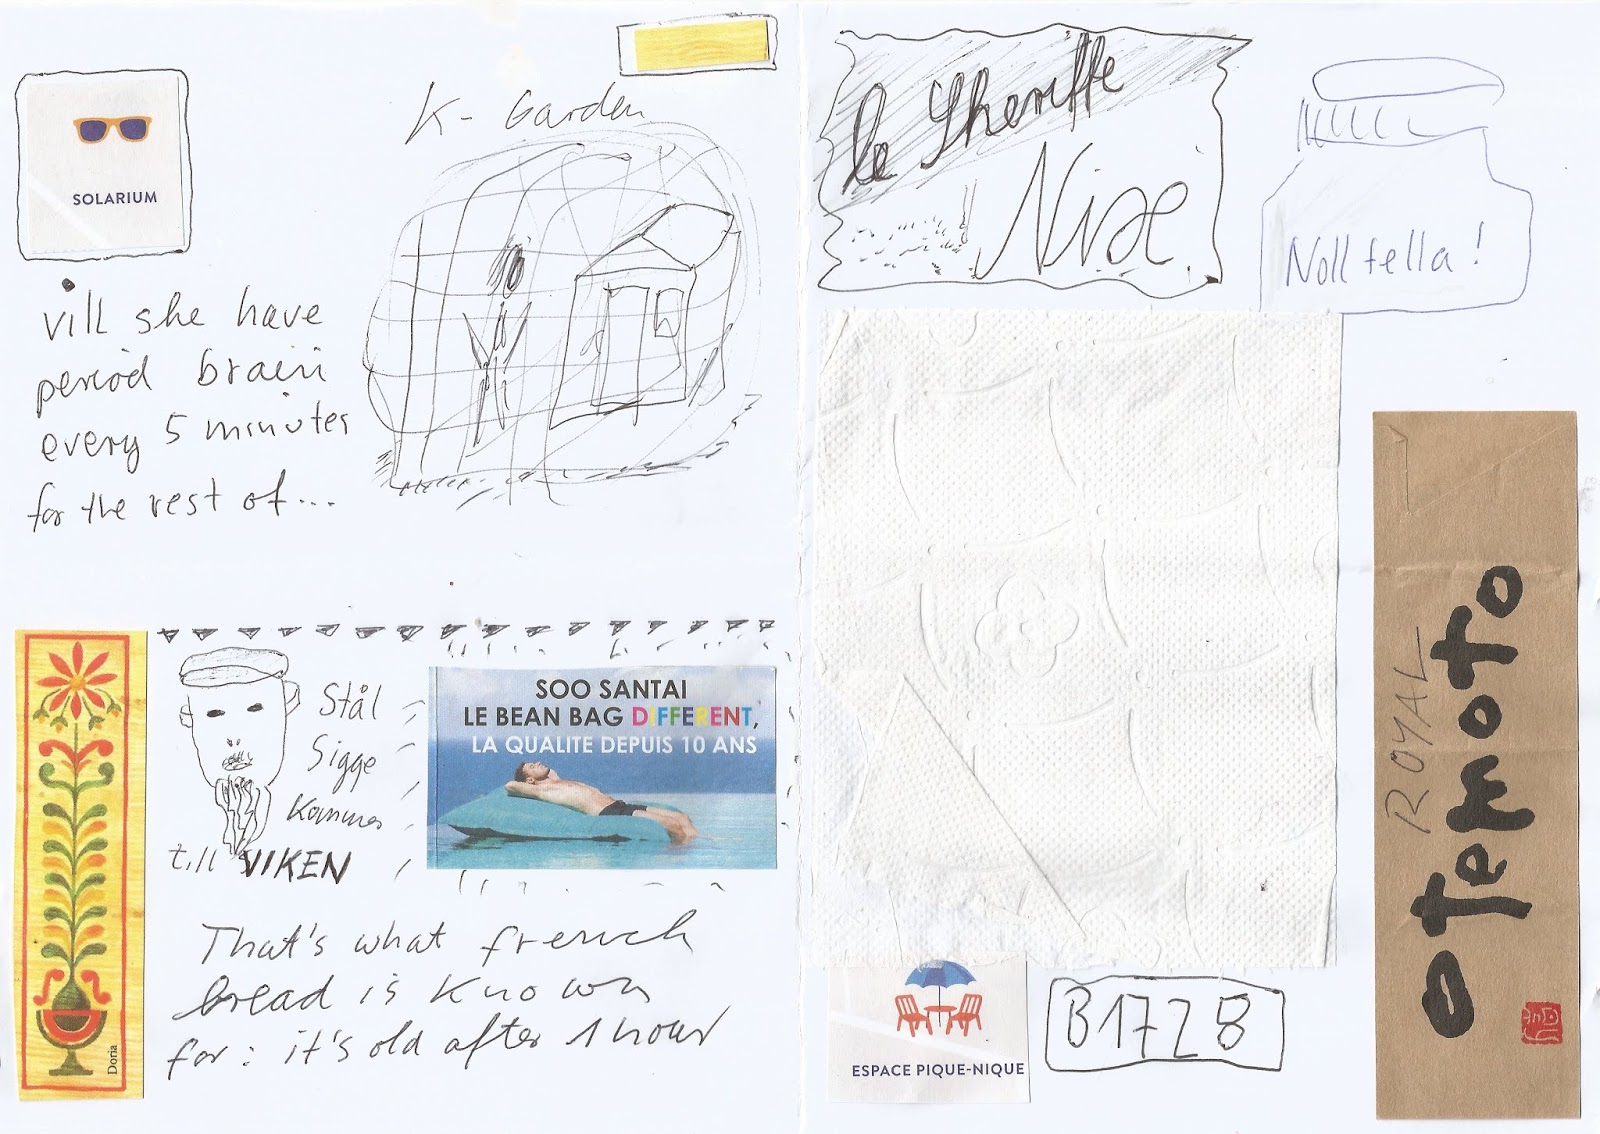 SOLARIUM
K - Garden
vill she have
period brain
every 5 minutes
for the rest of...
Doria
Stål
Sigge
kommer
till VIKEN
SOO SANTAI
LE BEAN BAG DIFFERENT,
LA QUALITE DEPUIS 10 ANS
That's what french
bread is known
for: it's old after 1 hour
le Sheriffe
Noll tella!
ROYAL
OTEMOTO
ESPACE PIQUE-NIQUE
B1728